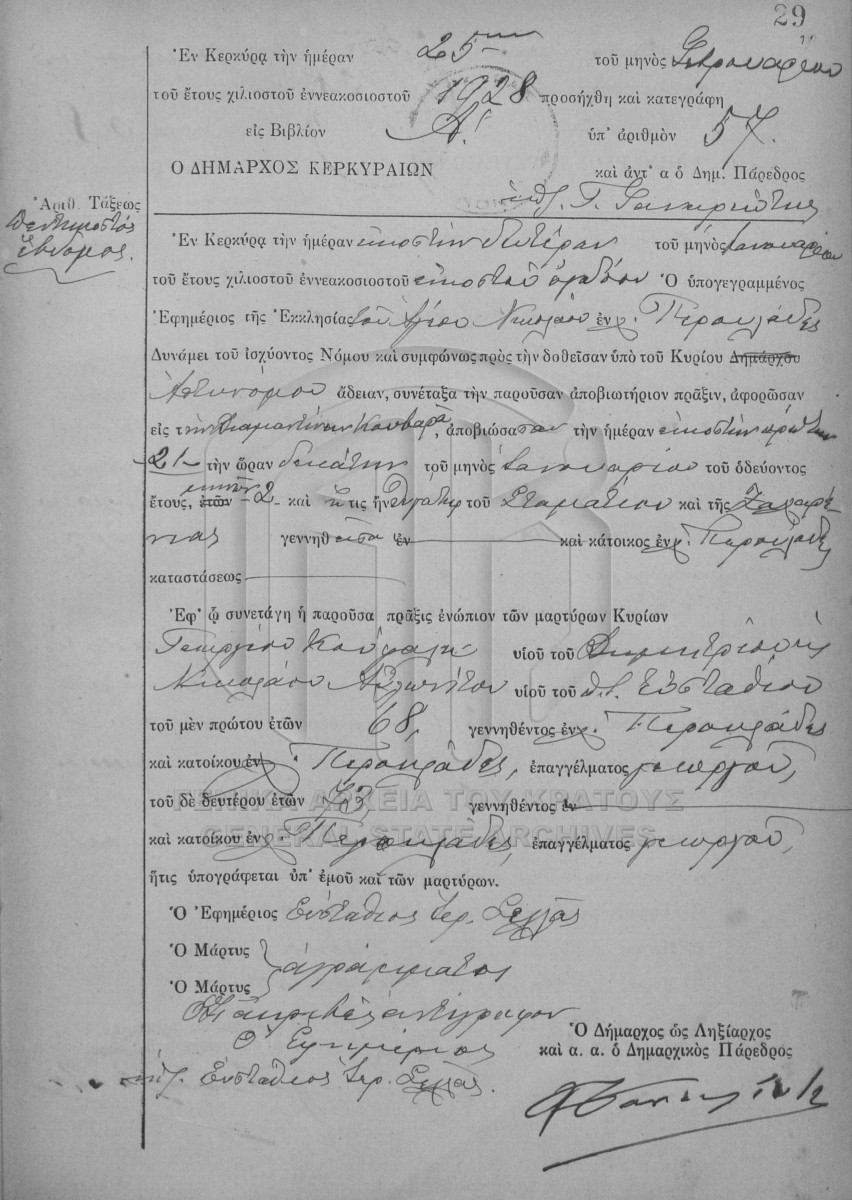 29
Ἐν Κερκύρᾳ τὴν ἡμέραν 25ην τοῦ μηνὸς Φεβρουαρίου
τοῦ ἔτους χιλιοστοῦ ἐννεακοσιοστοῦ 1928 προσήχθη καὶ κατεγράφη
εἰς Βιβλίον Α! ὑπ' ἀριθμὸν 57.
Ο ΔΗΜΑΡΧΟΣ ΚΕΡΚΥΡΑΙΩΝ καὶ ἀντ' α ὁ Δημ. Πάρεδρος
ὑπ. Γ.
Ἀριθ. Τάξεως
πεντηκοστός
ἕβδομος.
Ἐν Κερκύρᾳ τὴν ἡμέραν εἰκοστὴν δευτέραν τοῦ μηνὸς Ιανουαρίου
τοῦ ἔτους χιλιοστοῦ ἐννεακοσιοστοῦ εἰκοστοῦ ὀγδόου Ὁ ὑπογεγραμμένος
Ἐφημέριος τῆς Ἐκκλησίας τοῦ Ἁγίου Νικολάου ἐν χ. Περουλάδες
Δυνάμει τοῦ ἰσχύοντος Νόμου καὶ συμφώνως πρὸς τὴν δοθεῖσαν ὑπὸ τοῦ Κυρίου Δημάρχου
Ἀστυνόμου ἄδειαν, συνέταξα τὴν παροῦσαν ἀποβιωτήριον πρᾶξιν, ἀφορῶσαν
εἰς τὴν Διαμαντίναν, ἀποβιώσασαν τὴν ἡμέραν εἰκοστὴν πρώτην
-21- τὴν ὥραν δεκάτην τοῦ μηνὸς Ιανουαρίου τοῦ ὁδεύοντος
ἔτους, ἐτῶν μηνῶν -2- καὶ ἥτις ἦν θυγάτηρ τοῦ Σταματίου καὶ τῆς Ζαχαρέ
νιας γεννηθεῖσα ἐν καὶ κάτοικος ἐν χ. Περουλάδες
καταστάσεως
Ἐφ' ᾧ συνετάγη ἡ παροῦσα πρᾶξις ἐνώπιον τῶν μαρτύρων Κυρίων
Γεωργίου υἱοῦ τοῦ Δημητρίου
Νικολάου υἱοῦ τοῦ π.τ. Εὐσταθίου
τοῦ μὲν πρώτου ἐτῶν 68, γεννηθέντος ἐν χ. Περουλάδες
καὶ κατοίκου ἐν χ. Περουλάδες, ἐπαγγέλματος γεωργοῦ,
τοῦ δὲ δευτέρου ἐτῶν γεννηθέντος ἐν
καὶ κατοίκου ἐν χ. Περουλάδες, ἐπαγγέλματος γεωργοῦ,
ἥτις ὑπογράφεται ὑπ' ἐμοῦ καὶ τῶν μαρτύρων.
Ὁ Ἐφημέριος Εὐστάθιος Ἱερ. Σελλᾶς
Ὁ Μάρτυς
Ὁ Μάρτυς ἀγράμματοι
Δι' ἀκριβὲς ἀντίγραφον
Ὁ Ἐφημέριος
ὑπ. Εὐστάθιος Ἱερ. Σελλᾶς.
Ὁ Δήμαρχος ὡς Ληξίαρχος
καὶ α. α. ὁ Δημαρχικὸς Πάρεδρος
ΓΕΝΙΚΑ ΑΡΧΕΙΑ ΤΟΥ ΚΡΑΤΟΥΣ
GENERAL STATE ARCHIVES